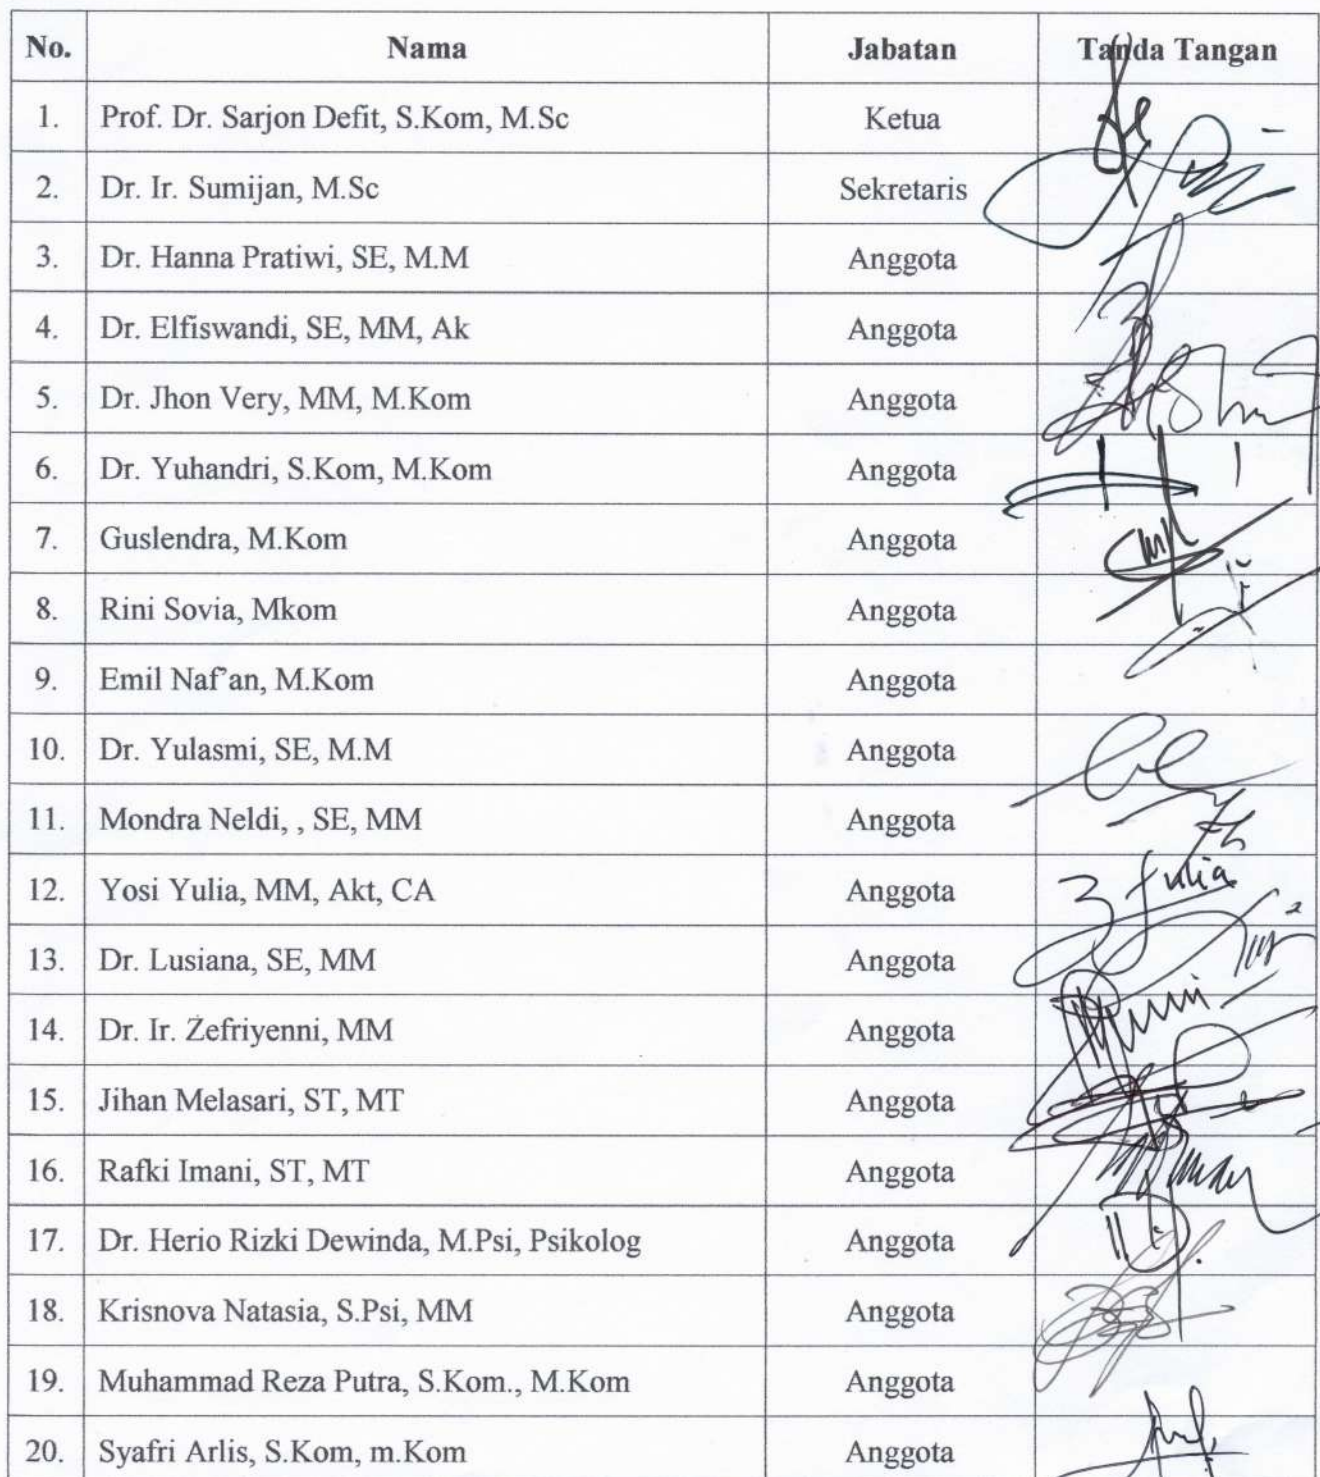 No. Nama Jabatan Tanda Tangan
1. Prof. Dr. Sarjon Defit, S.Kom, M.Sc Ketua
2. Dr. Ir. Sumijan, M.Sc Sekretaris
3. Dr. Hanna Pratiwi, SE, M.M Anggota
4. Dr. Elfiswandi, SE, MM, Ak Anggota
5. Dr. Jhon Very, MM, M.Kom Anggota
6. Dr. Yuhandri, S.Kom, M.Kom Anggota
7. Guslendra, M.Kom Anggota
8. Rini Sovia, Mkom Anggota
9. Emil Naf’an, M.Kom Anggota
10. Dr. Yulasmi, SE, M.M Anggota
11. Mondra Neldi, , SE, MM Anggota
12. Yosi Yulia, MM, Akt, CA Anggota
13. Dr. Lusiana, SE, MM Anggota
14. Dr. Ir. Zefriyenni, MM Anggota
15. Jihan Melasari, ST, MT Anggota
16. Rafki Imani, ST, MT Anggota
17. Dr. Herio Rizki Dewinda, M.Psi, Psikolog Anggota
18. Krisnova Natasia, S.Psi, MM Anggota
19. Muhammad Reza Putra, S.Kom., M.Kom Anggota
20. Syafri Arlis, S.Kom, m.Kom Anggota